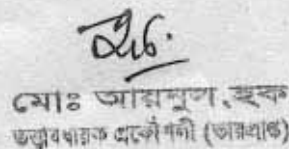 মোঃ আয়নুল হক
তত্ত্বাবধায়ক প্রকৌশলী (ভারপ্রাপ্ত)